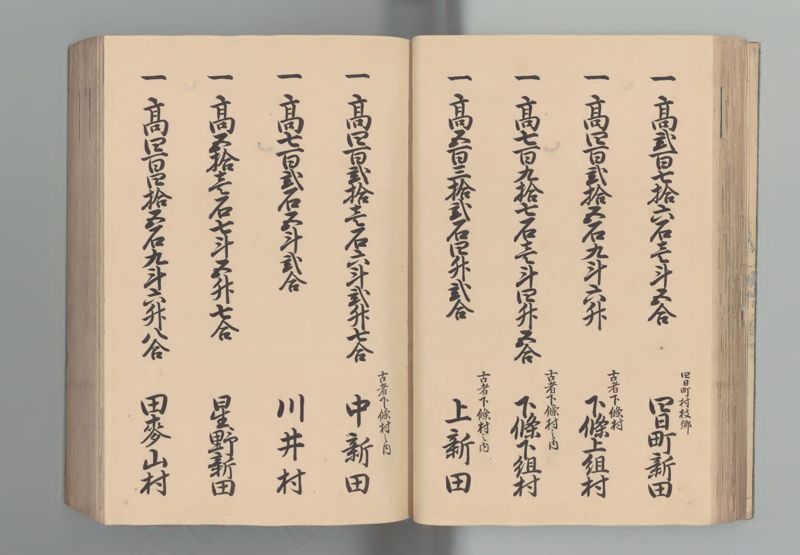 一 高弐百七拾六石壱斗五合
四日町村枝郷
四日町新田
一 高四百弐拾五石九斗六升
古者下條村
下條上組村
一 高七百九拾七石壱斗四升五合
古者下條村之内
下條下組村
一 高五百三拾弐石四升弐合
古者下條村之内
上新田
一 高四百弐拾壱石六斗弐升七合
古者下條村之内
中新田
一 高七百弐石五斗弐合
川井村
一 高五拾壱石七斗五升七合
星野新田
一 高四百四拾五石九斗六升八合
田麥山村